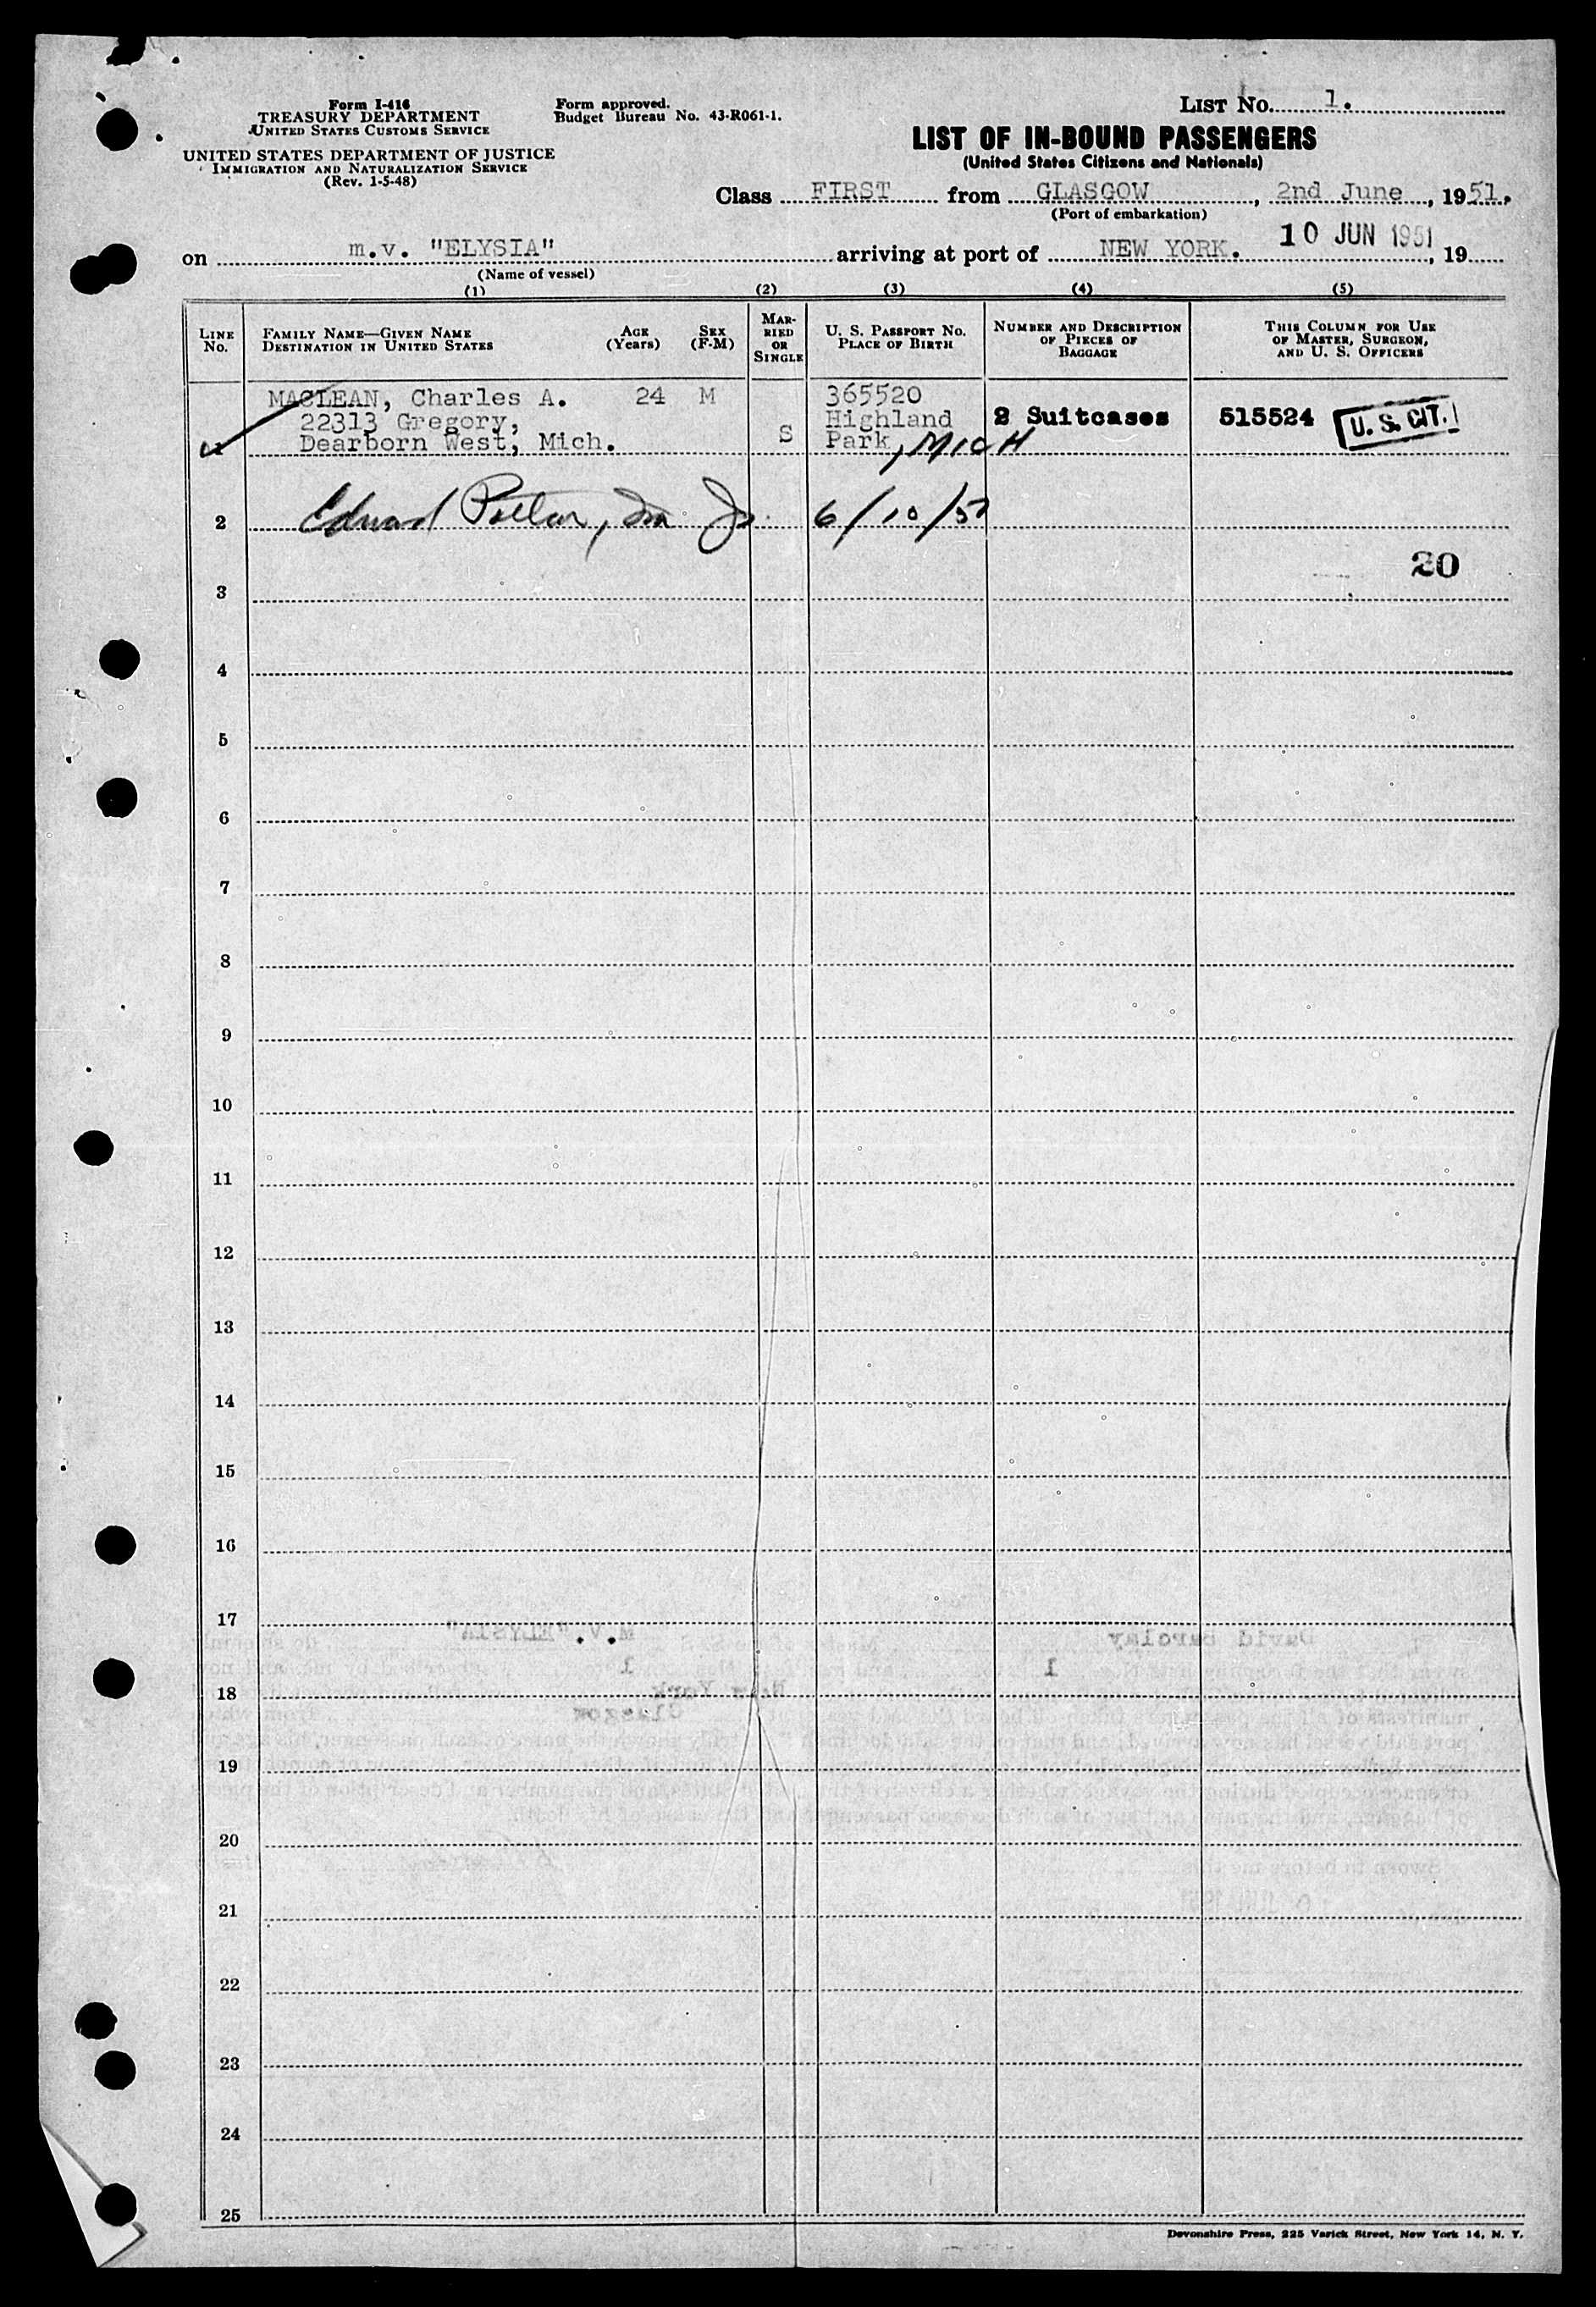 Form I-416
TREASURY DEPARTMENT
UNITED STATES CUSTOMS SERVICE
UNITED STATES DEPARTMENT OF JUSTICE
IMMIGRATION AND NATURALIZATION SERVICE
(Rev. 1-5-48)
Form approved.
Budget Bureau No. 43-R061-1.
LIST No. 1.
LIST OF IN-BOUND PASSENGERS
(United States Citizens and Nationals)
Class FIRST from GLASGOW, 2nd June, 1951.
(Port of embarkation)
on m.v. "ELYSIA" arriving at port of NEW YORK. 10 JUN 1951, 19
(Name of vessel)
(1) (2) (3) (4) (5)
LINE No. FAMILY NAME—GIVEN NAME DESTINATION IN UNITED STATES AGE (Years) SEX (F-M) MARRIED OR SINGLE U. S. PASSPORT No. PLACE OF BIRTH NUMBER AND DESCRIPTION OF PIECES OF BAGGAGE THIS COLUMN FOR USE OF MASTER, SURGEON, AND U. S. OFFICERS
MACLEAN, Charles A. 24 M 365520
22313 Gregory, Highland 2 Suitcases 515524 U. S. CIT.
Dearborn West, Mich. S Park, MICH
2 Edward 6/10/51
20
3
4
5
6
7
8
9
10
11
12
13
14
15
16
17
M.V. "ELYSIA" David Barclay
1 1
18
New York
Glasgow
19
20
21
22
23
24
25
Devonshire Press, 225 Varick Street, New York 14, N. Y.